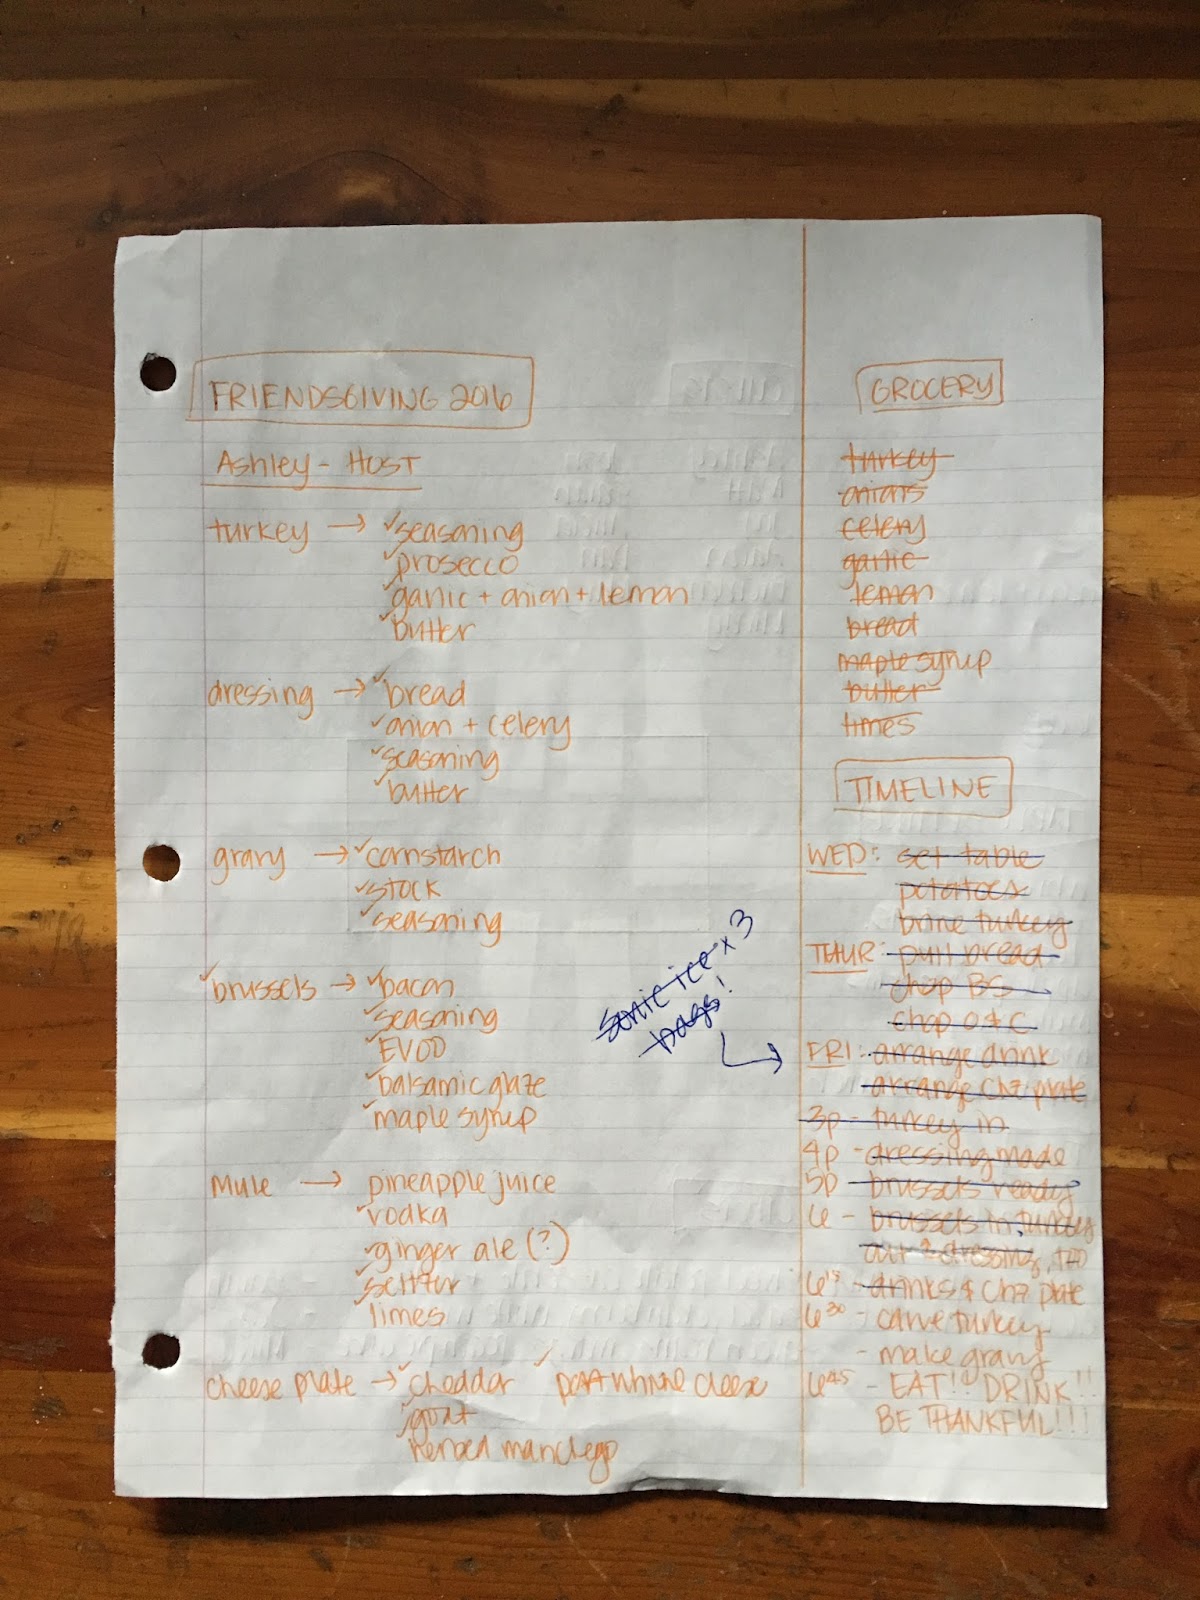 FRIENDSGIVING 2016
Ashley - HOST
turkey → ✓seasoning
✓prosecco
✓garlic + onion + lemon
✓butter
dressing → ✓bread
✓onion + celery
✓seasoning
✓butter
gravy → ✓cornstarch
✓stock
✓seasoning
✓brussels → ✓bacon
✓seasoning
✓EVOO
✓balsamic glaze
✓maple syrup
Mule → pineapple juice
✓vodka
✓ginger ale (?)
✓seltzer
✓limes
cheese plate → ✓cheddar ✓port whine cheese
✓goat
✓herbed manchego
sonic ice x 3
bags!
GROCERY
turkey
onions
celery
garlic
lemon
bread
maple syrup
butter
limes
TIMELINE
WED: set table
potatoes
brine turkey
THUR: pull bread
chop BS
chop O & C
FRI: arrange drink
arrange chz plate
3p - turkey in
4p - dressing made
5p - brussels ready
6 - brussels in, turkey
out & dressing,
6¹⁵ - drinks & chz plate
6³⁰ - carve turkey
- make gravy
6⁴⁵ - EAT!! DRINK!!
BE THANKFUL!!!